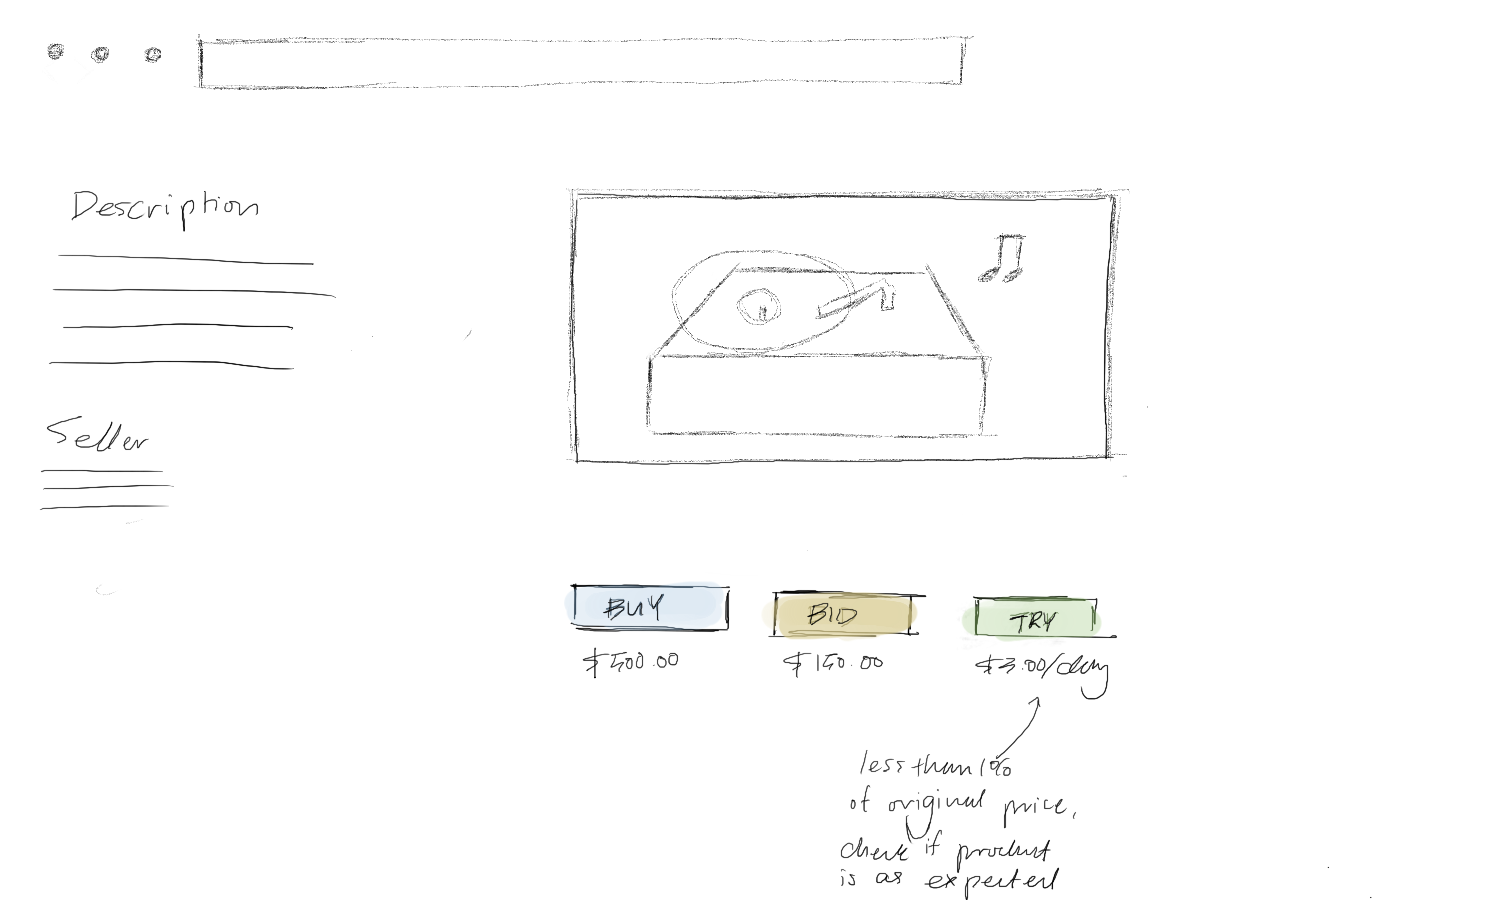 Description
Seller
BUY
BID
TRY
$500.00
$150.00
$3.00/day
less than 1%
of original price,
check if product
is as expected